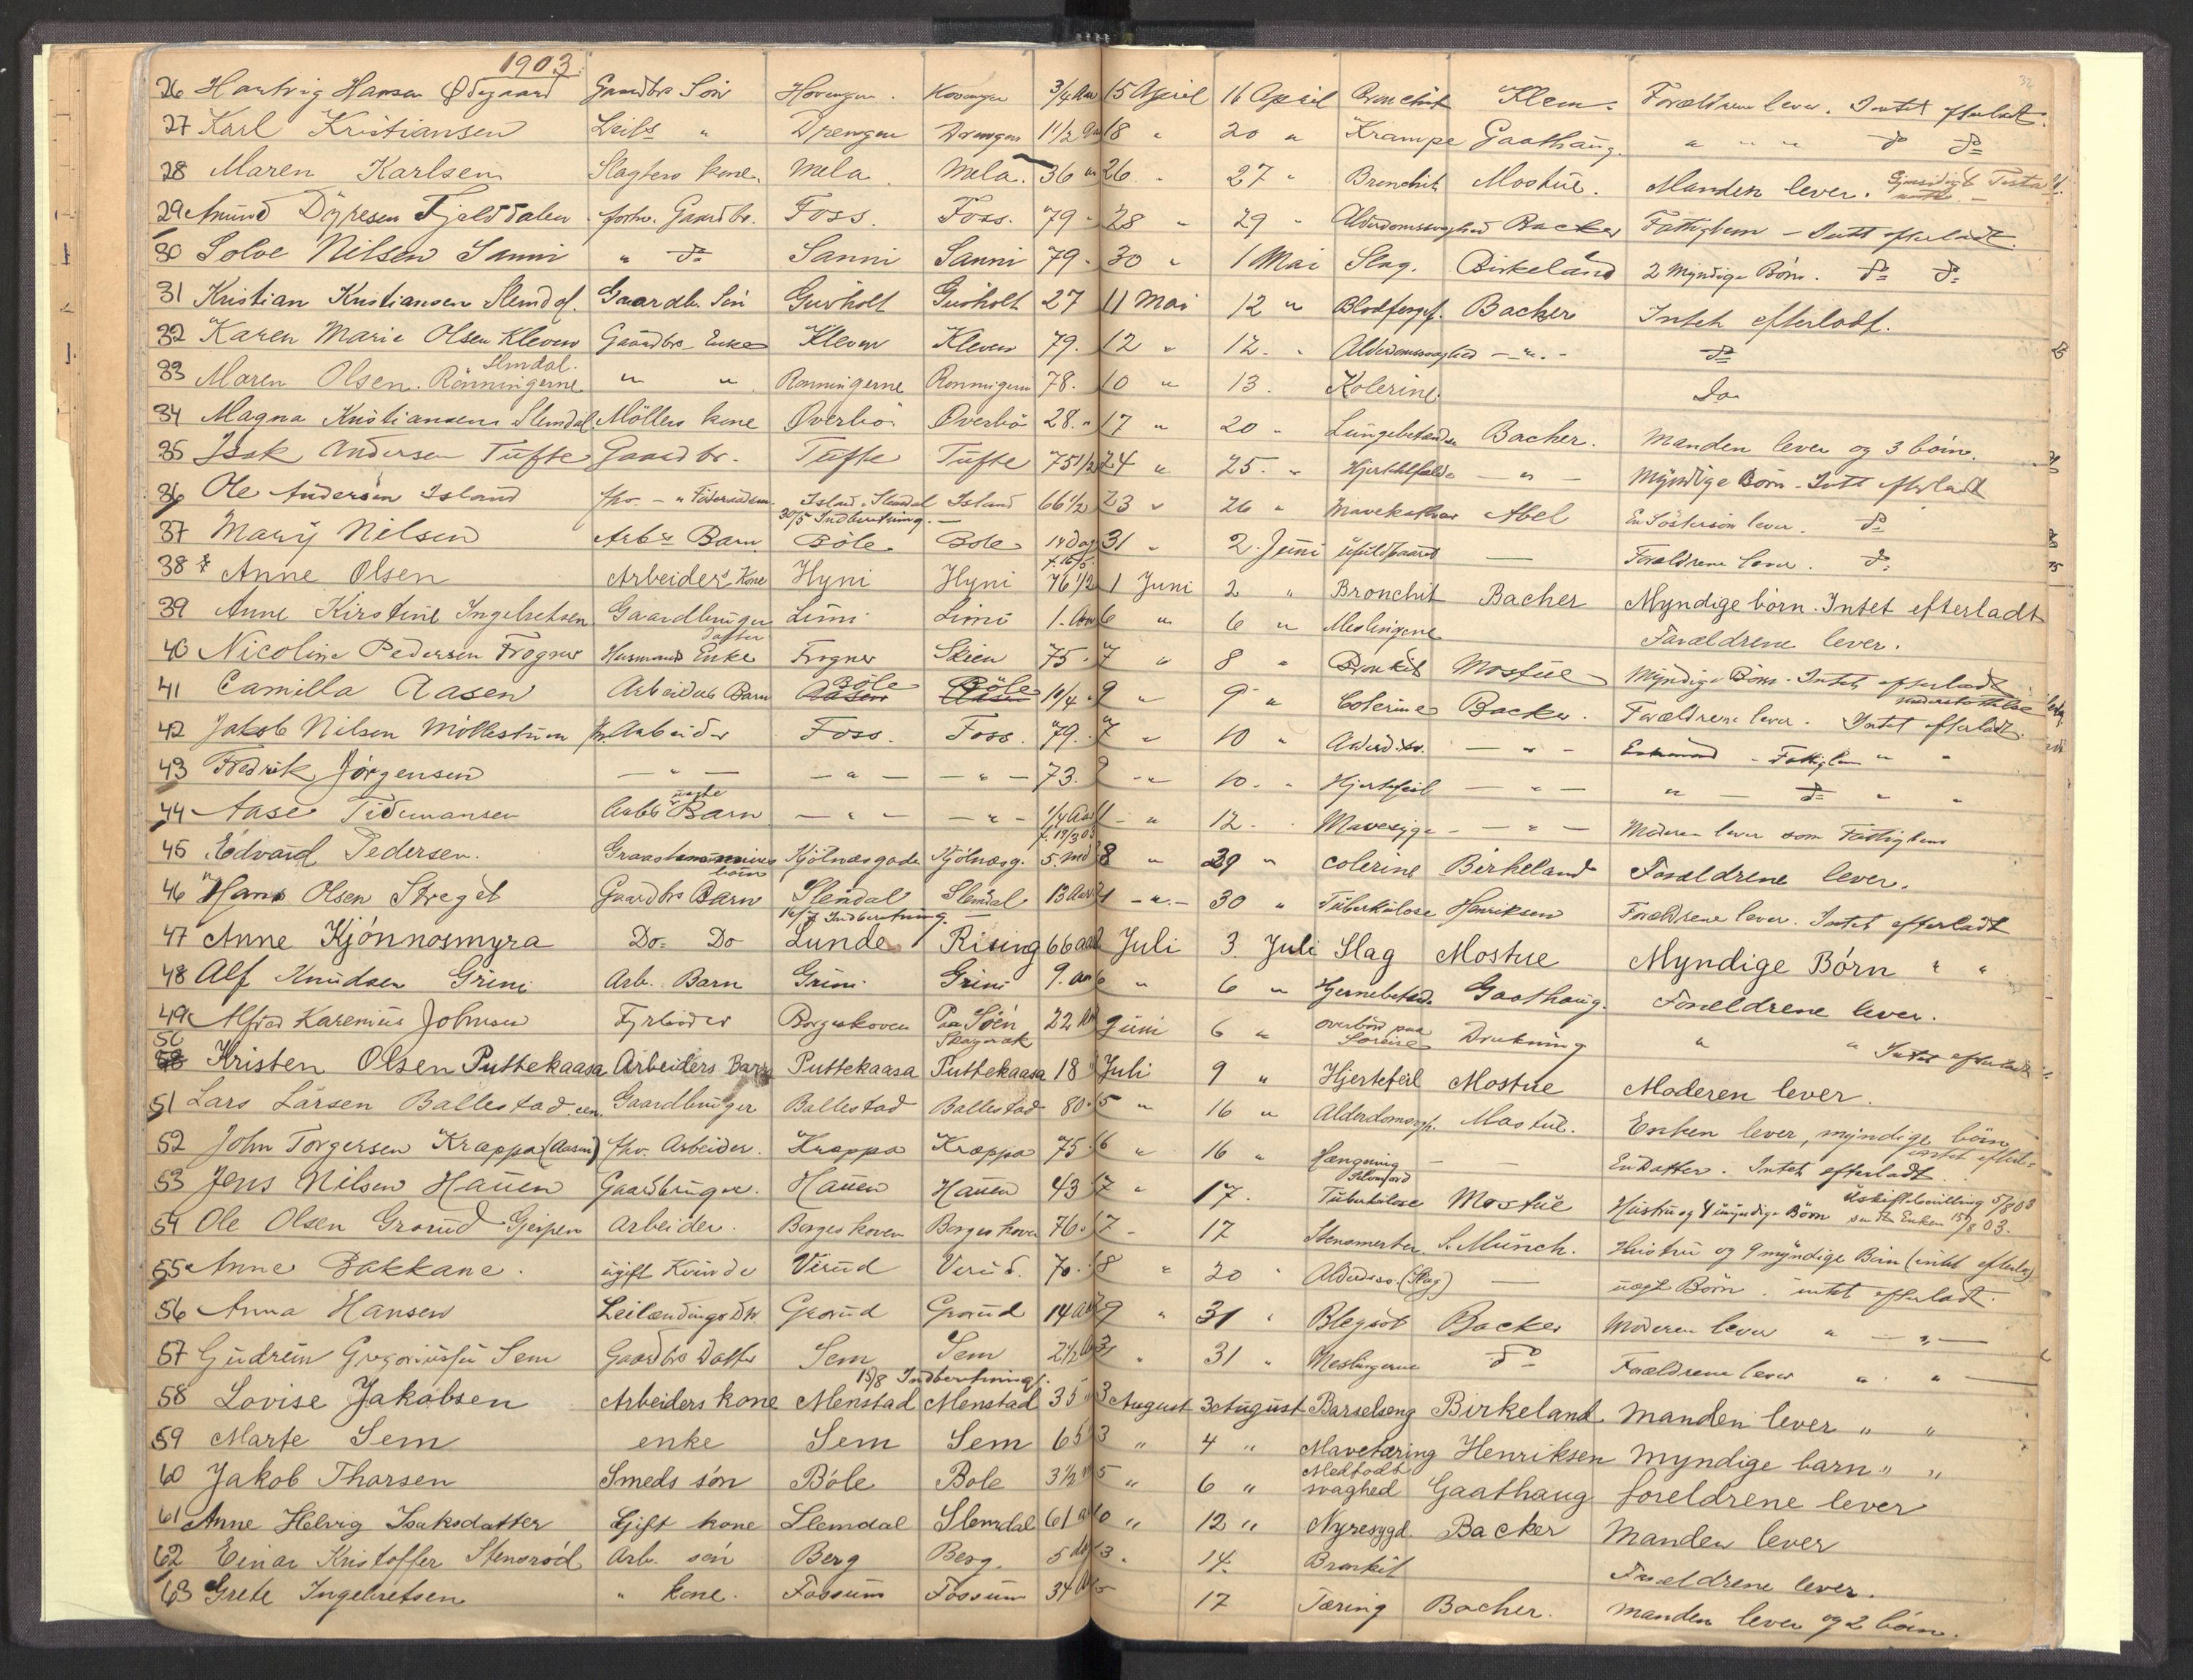 1903
32
26 Hartvig Hansen Ødegaard Gaardbrs Søn Hovengen Hovengen 3/4 Aar 15 April 16 April Bronchit Klem. Forældrene lever. Intet efterladt.
27 Karl Kristiansen Leil's " Drengen Drengen 11/2 Aar 18 " 20 " Krampe Gaathaug. " " " do do
28 Maren Karlsen Slagters kone. Mela. Mæla. 36 " 26 " 27 " Bronchit Mostue. Manden lever. Gjensidigt Testa
29 Amund Dyresen Fjelddalen forhv. Gaardbr. Foss. Foss. 79 " 28 " 29 " Alderdomssvaghed Backer Fattiglem - Intet efterladt.
30 Solve Nilsen Sanni " do Sanni Sanni 79 " 30 " 1 Mai Slag. Birkeland 2 Myndige Børn. do do
31 Kristian Kristiansen Slemdal. Gaardb. Søn Gurholt Gurholt 27 11 Mai 12 " Blodforgif. Backer Intet efterladt.
32 Karen Marie Olsen Kleven Gaardbrs Enke Kleven Kleven 79. 12 " 12. " Alderdomssvaghed — " — do
Slemdal.
33 Maren Olsen. Rønningerne " " Rønningerne Rønningerne 78. 10 " 13. Kolerine. Do
34 Magna Kristiansen Slemdal. Møllers kone Øverbø Øverbø 28. " 17 " 20 " Lungebetændse Bacher. Manden lever og 3 børn.
35 Isak Andersen Tufte Gaardbr. Tufte Tufte 75 1/2 24 " 25. " — " — Myndige Børn. Intet efterladt
36 Ole Andersen Island fhv. — " Island. Slemdal Island 66 1/2 23 " 26 " Mavekathar Abel En Søstersøn lever. do
30/5 Indberetning. —
37 Mary Nilsen Arb's Barn. Bøle Bøle 14 Dag 31 " 2. Juni ufuldbaaret — Forældrene lever. do
f. 16/5
38 Anne Olsen Arbeiders Kone Hyni Hyni 76 1/2 1 Juni 2 " Bronchit Bacher Myndige børn. Intet efterladt
39 Anne Kirstine Ingebretsen Gaardbruger Limi Limi 1. Aar 6 " 6 " Meslingene Forældrene lever.
datter
40 Nicoline Pedersen Frogner Husmands Enke Frogner Skien 75. 7 " 8 " Bronkit Mostue Myndige Børn. Intet efterladt
understøttelse
41 Camilla Aasen Arbeiders Barn Aasen Bøle Aasen Bøle 10/4 9 " 9 " Colerine Backer. Forældrene lever. Intet efterladt.
42 Jakob Nilsen Møllestuen fhv. Arbeider Foss. Foss. 79. 7 " 10 " Alderd.sv. — " — Fattiglem " "
43 Fredrik Jørgensen — " — — " — — " — 73. 9 " 10. " Hjertefeil — " — " — do " "
44 Aase Tidemansen Arbs uægte Barn — " — — " — 1/4 Aar 11 " 12 " Mavesyge — " — Moderen lever som Fattiglem
f. 19/3 03
45 Edvard Pedersen. Kjølnæsgade Kjølnæsg. 5. md 28 " 29 " colerine Birkeland Forældrene lever.
barn
46 Hans Olsen Streget Gaardbrs Barn Slemdal Slemdal 13 Aar 21 — " — 30 " Tuberkulose Henriksen Forældrene lever. Intet efterladt
16/7 Indberetning. —
47 Anne Kjønnosmyra Do= Do Lunde Rising 66 aar 2 Juli 3. Juli Slag Mostue Myndige Børn " "
48 Alf Knudsen Grini Arb. Barn Grini Grini 9. aar 6 " 6 " Hjernebetænd. Gaathaug. Foreldrene lever.
49 Alfred Karenius Johnsen Fyrbøder Borgeskoven Paa Søen Skagerak 22 Juni 6 " overbord paa Søreise Drukning " " Intet efterladt
50 Kristen Olsen Puttekaasa Arbeiders Barn Puttekaasa Puttekaasa 18 Juli 9 " Hjertefeil Mostue Moderen lever.
51 Lars Larsen Ballestad. Gaardbruger Ballestad Ballestad 80. 15 " 16 " Alderdomssvgh. Mostue. Enken lever, myndige børn, intet efterl.
52 John Torgersen Krappa (Aasen) fhv. Arbeider. Krappa Krappa 75. 16 " 16 " Hængning — — En Datter. Intet efterladt.
53 Jens Nilsen Hauen Gaardbruger. Hauen Hauen 43 17 " 17. Tuberkulose Mostue Hustru og 4 umyndige Børn Uskiftebevilling 5/8 03 sendt Enken 15/8 03.
54 Ole Olsen Grorud Gjerpen Arbeider. Borgeskoven Borgeskoven 76. 17 — 17 S. Munch. Hustru og 9 myndige Børn (intet efterla)
55 Anne Bakkane. ugift Kvinde Virud Virud. 70. 18 " 20 " Alderdsv. (Slag) — uægt Børn. intet efterladt.
56 Anna Hansen Leilændings Dtr Grorud Grorud 14 aar 29 " 31 " Blegsot Backer Moderen lever " — " —
57 Gudrun Gregoriusen Sem Gaardbrs Datter Sem Sem 2 1/2 31 " 31 " Meslingerne do Forældrene lever " " —
15/8 Indberetning.
58 Lovise Jakobsen Arbeiders kone Menstad Menstad 35 3 August 3 August Barselseng Birkeland Manden lever " "
59 Marte Sem enke Sem Sem 65 3 " 4 " Mavetæring Henriksen Myndige barn " "
60 Jakob Thorsen Smeds søn Bøle Bøle 3 1/2 5 " 6 " Medfødt svaghed Gaathaug foreldrene lever
61 Anne Helvig Isaksdatter Gift kone Slemdal Slemdal 61 aar 10 " 12 " Nyresygd. Backer Manden lever
62 Einar Kristoffer Stensrød Arb. søn Berg Berg. 5 13 " 14. Bronkit Forældrene lever.
63 Grete Ingebretsen " kone. Fossum Fossum 34 15 17 Tæring Bacher. manden lever og 2 børn.